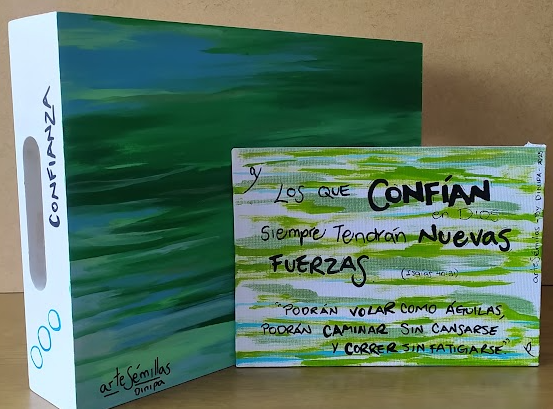 CONFIANZA
arteSémillas
Dinipa
Los que CONFÍAN
en Dios
Siempre Tendrán Nuevas
FUERZAS (Isaías 40:31)
"PODRÁN VOLAR COMO ÁGUILAS,
PODRÁN CAMINAR SIN CANSARSE
Y CORRER SIN FATIGIARSE"